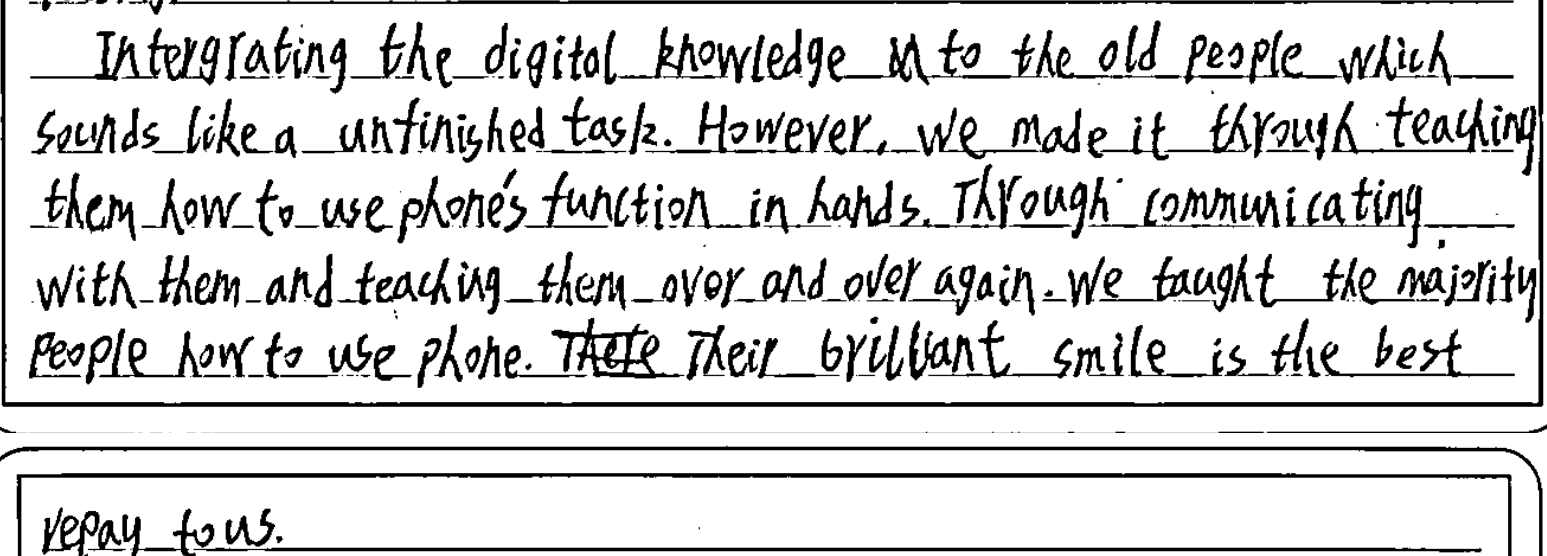 Intergrating the digital knowledge into the old people which
sounds like a unfinished task. However, we made it through teaching
them how to use phone's function in hands. Through communicating
with them and teaching them over and over again. We taught the majority
people how to use phone. Their brilliant smile is the best
repay to us.